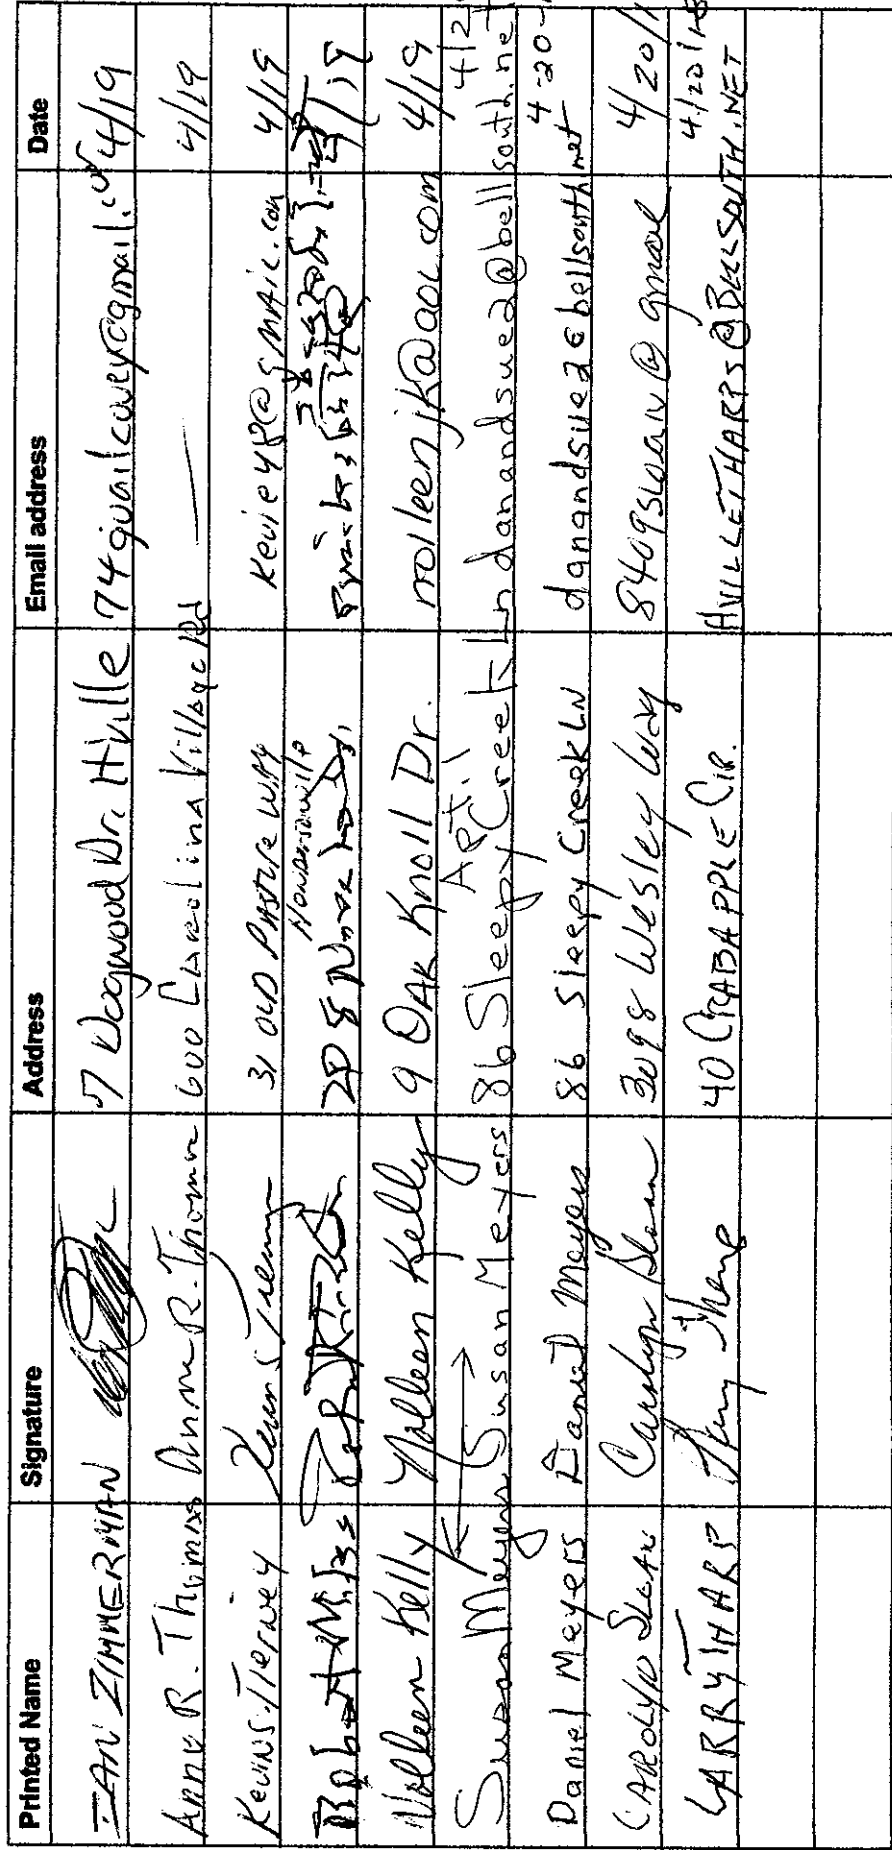 Printed Name Signature Address Email address Date
IAN ZIMMERMAN 7 Dogwood Dr. Hville 74quailcovey@gmail. 4/19
Anne R. Thomas Anne R. Thomas 600 Carolina Village Rd — 4/19
Kevin S. Kevin S 31 OLD PASTURE WAY @GMAIL.COM 4/19
Hendersonville
Robert 208
Nolleen Kelly Nolleen Kelly 9 OAK Knoll Dr. nolleenjk@aol.com 4/19
Apt. 1
Susan Meyers Susan Meyers 86 Sleepy Creek Ln danandsue2@bellsouth.net 4/2
Daniel Meyers Daniel Meyers 86 Sleepy Creek LN danandsue2@bellsouth.net 4-20-
CAROLYN SLOAN Carolyn Sloan 3098 Wesley Way 8409sloan@gmail 4/20/
LARRY THARP Larry Tharp 40 CRABAPPLE CIR. HVILLETHARPS@BELLSOUTH.NET 4/20/